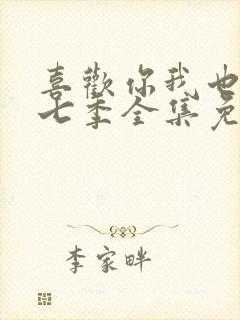 喜歡你我也
七季全集免
李家畔